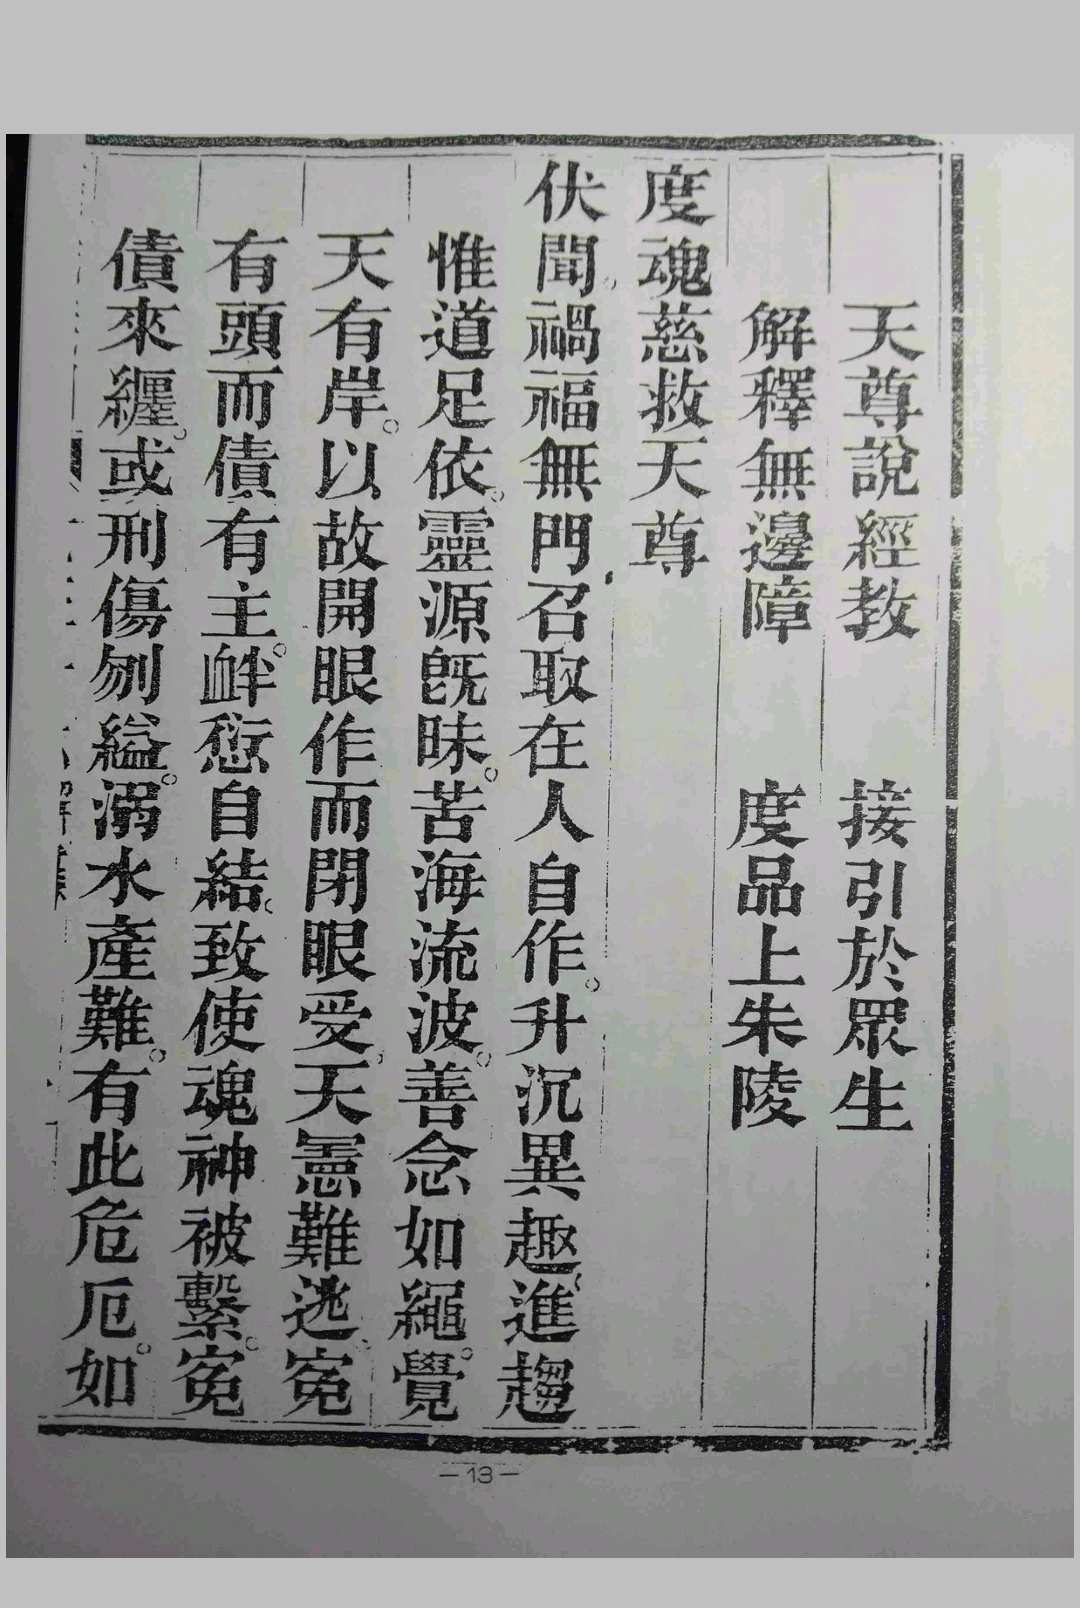 天尊說經教　接引於眾生
解釋無邊障　度品上朱陵
度魂慈救天尊
伏聞。禍福無門召取在人自作。升沉異趣。進趨
惟道足依。靈源既昧。苦海流波。善念如繩。覺
天有岸。以故開眼作而閉眼受。天憲難逃。冤
有頭而債有主。衅愆自結。致使魂神被繫。冤
債來纏。或刑傷刎縊。溺水產難。有此危厄。如
—13—